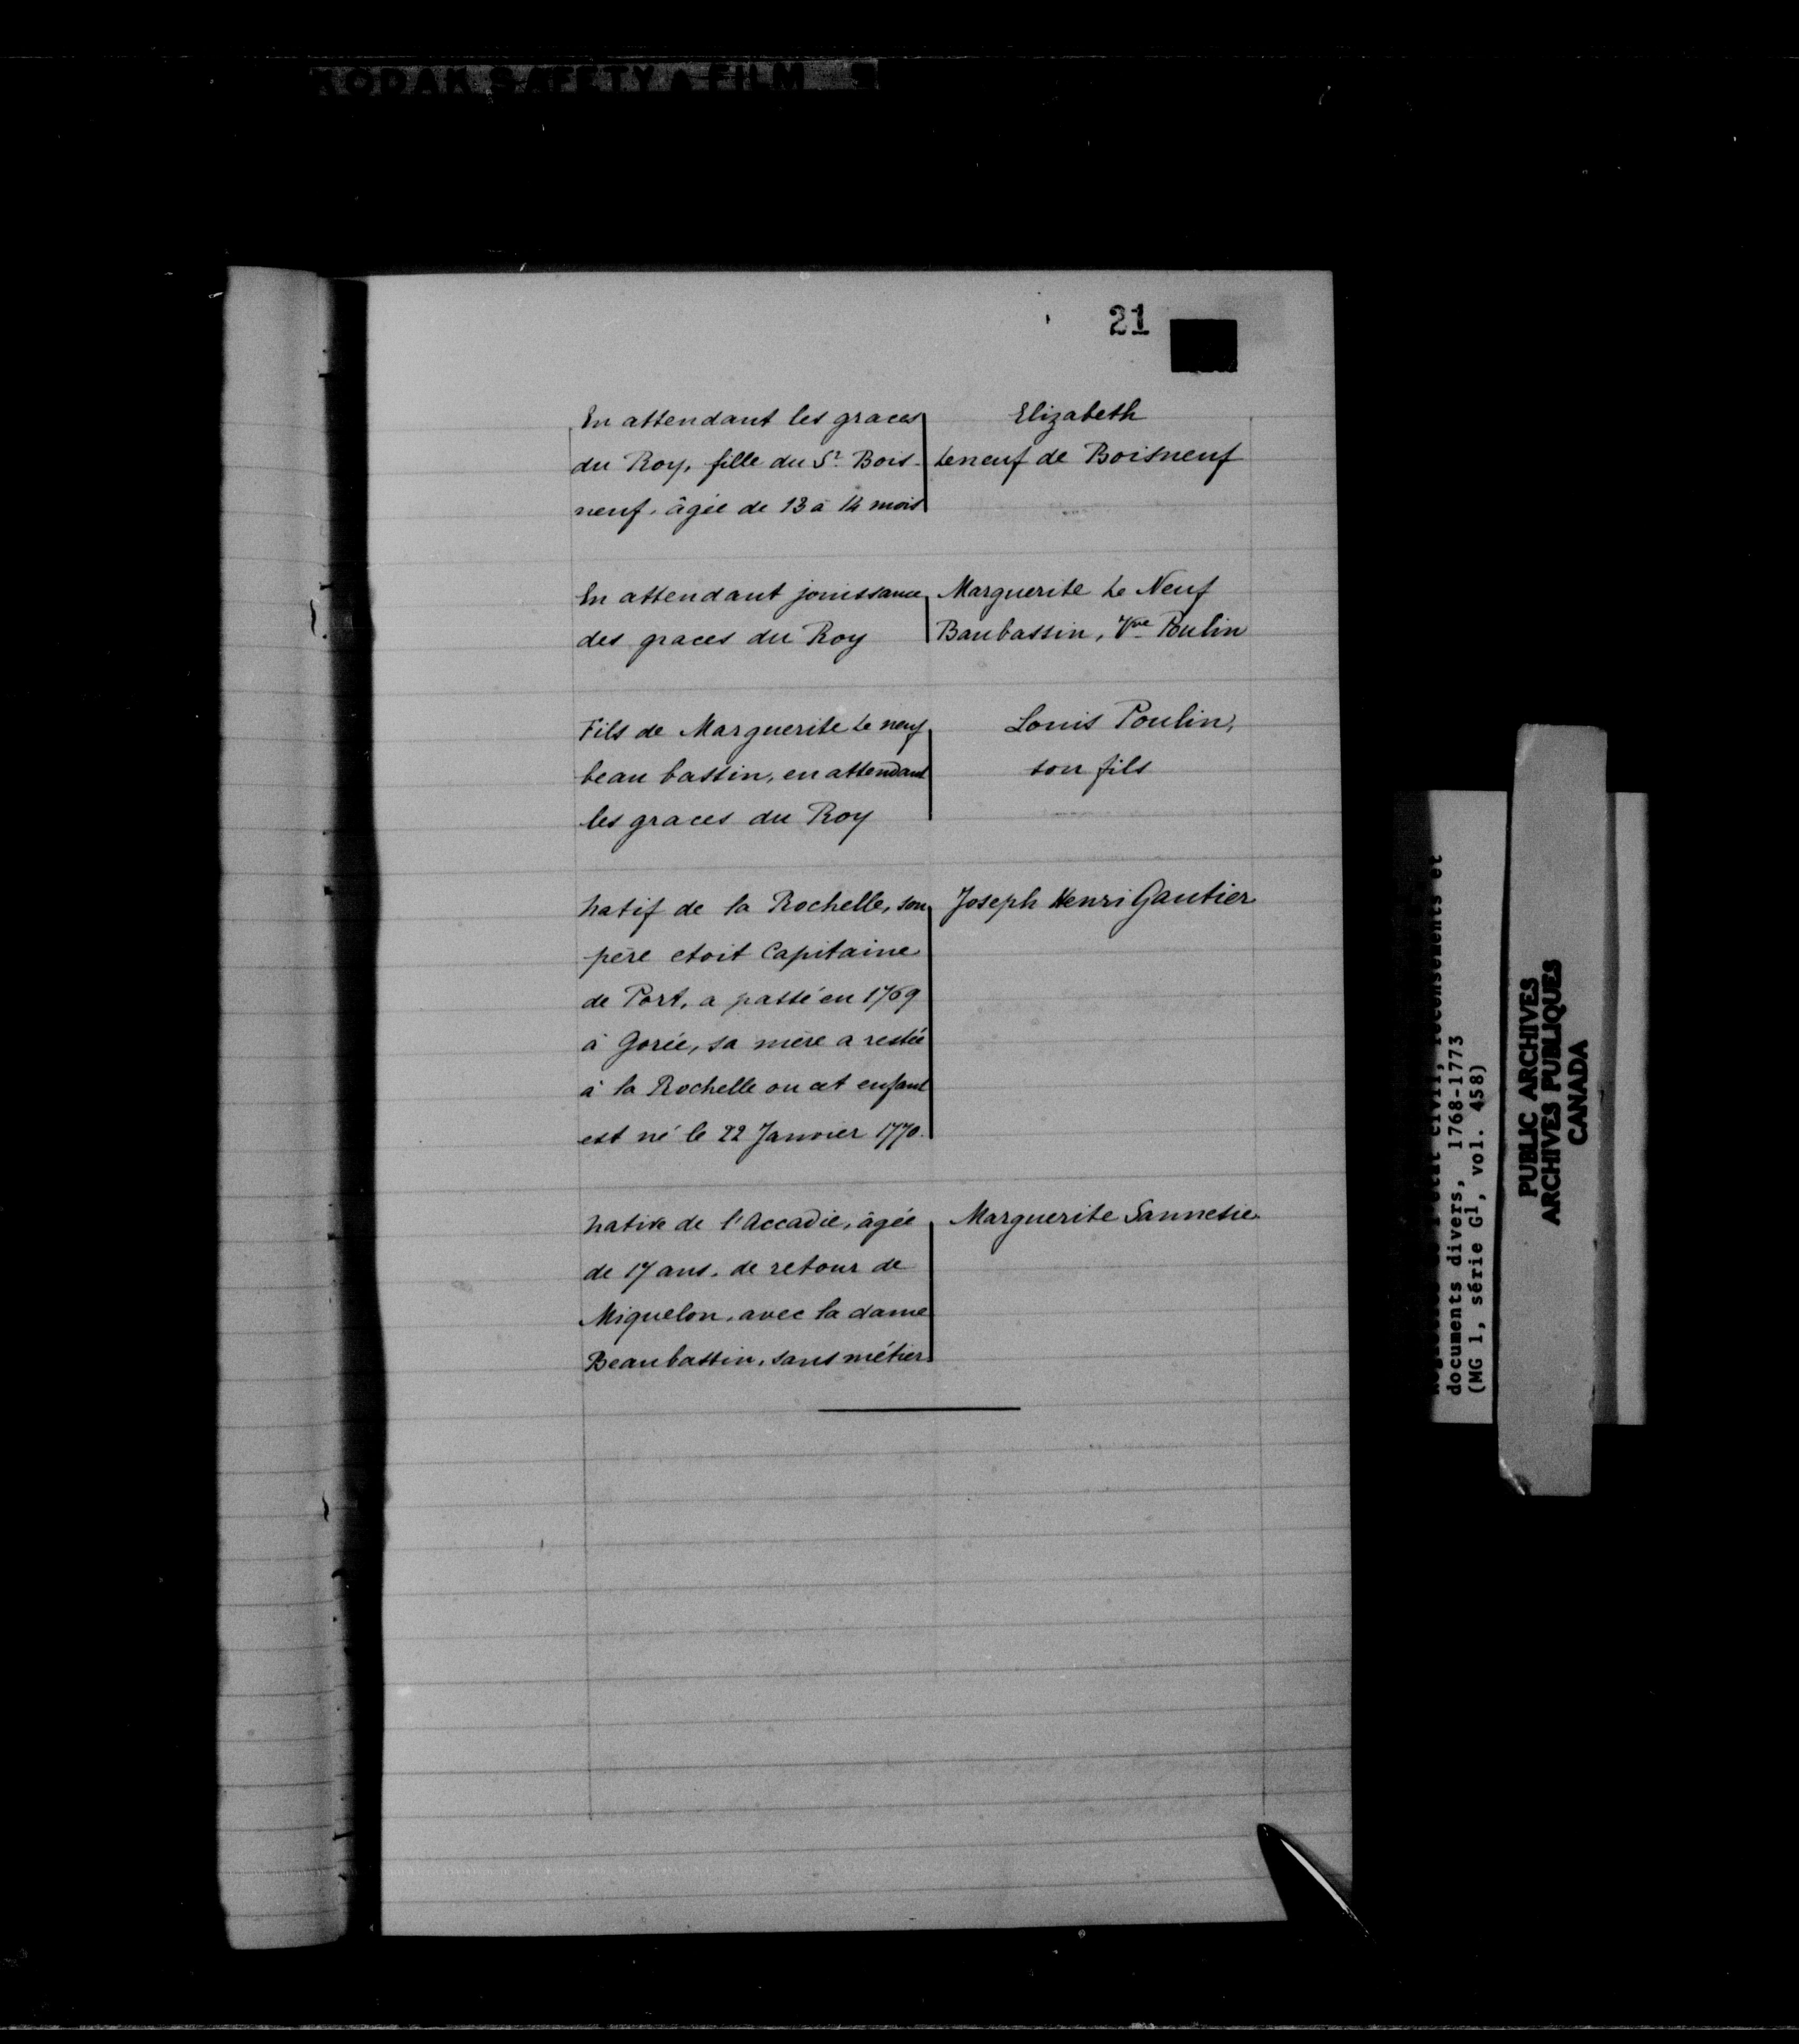 KODAK SAFETY FILM
21
En attendant les graces
du Roy, fille du Sr. Bois-
neuf, âgée de 13 à 14 mois
Elizabeth
Leneuf de Boisneuf
En attendant jouissance
des graces du Roy
Marguerite Le Neuf
Baubassin, Vve Poulin
Fils de Marguerite Le neuf
beau bassin, en attendant
les graces du Roy
Louis Poulin,
son fils
Natif de la Rochelle, son
père etoit Capitaine
de Port, a passé en 1769
à Gorée, sa mère a restée
à la Rochelle ou cet enfant
est né le 22 Janvier 1770.
Joseph Henri Gautier
Native de l'Accadie, âgée
de 17 ans, de retour de
Miquelon, avec la dame
Beaubassin, sans métier
Marguerite Sannesie
état civil, recensements et
documents divers, 1768-1773
(MG 1, série G1, vol. 458)
PUBLIC ARCHIVES
ARCHIVES PUBLIQUES
CANADA